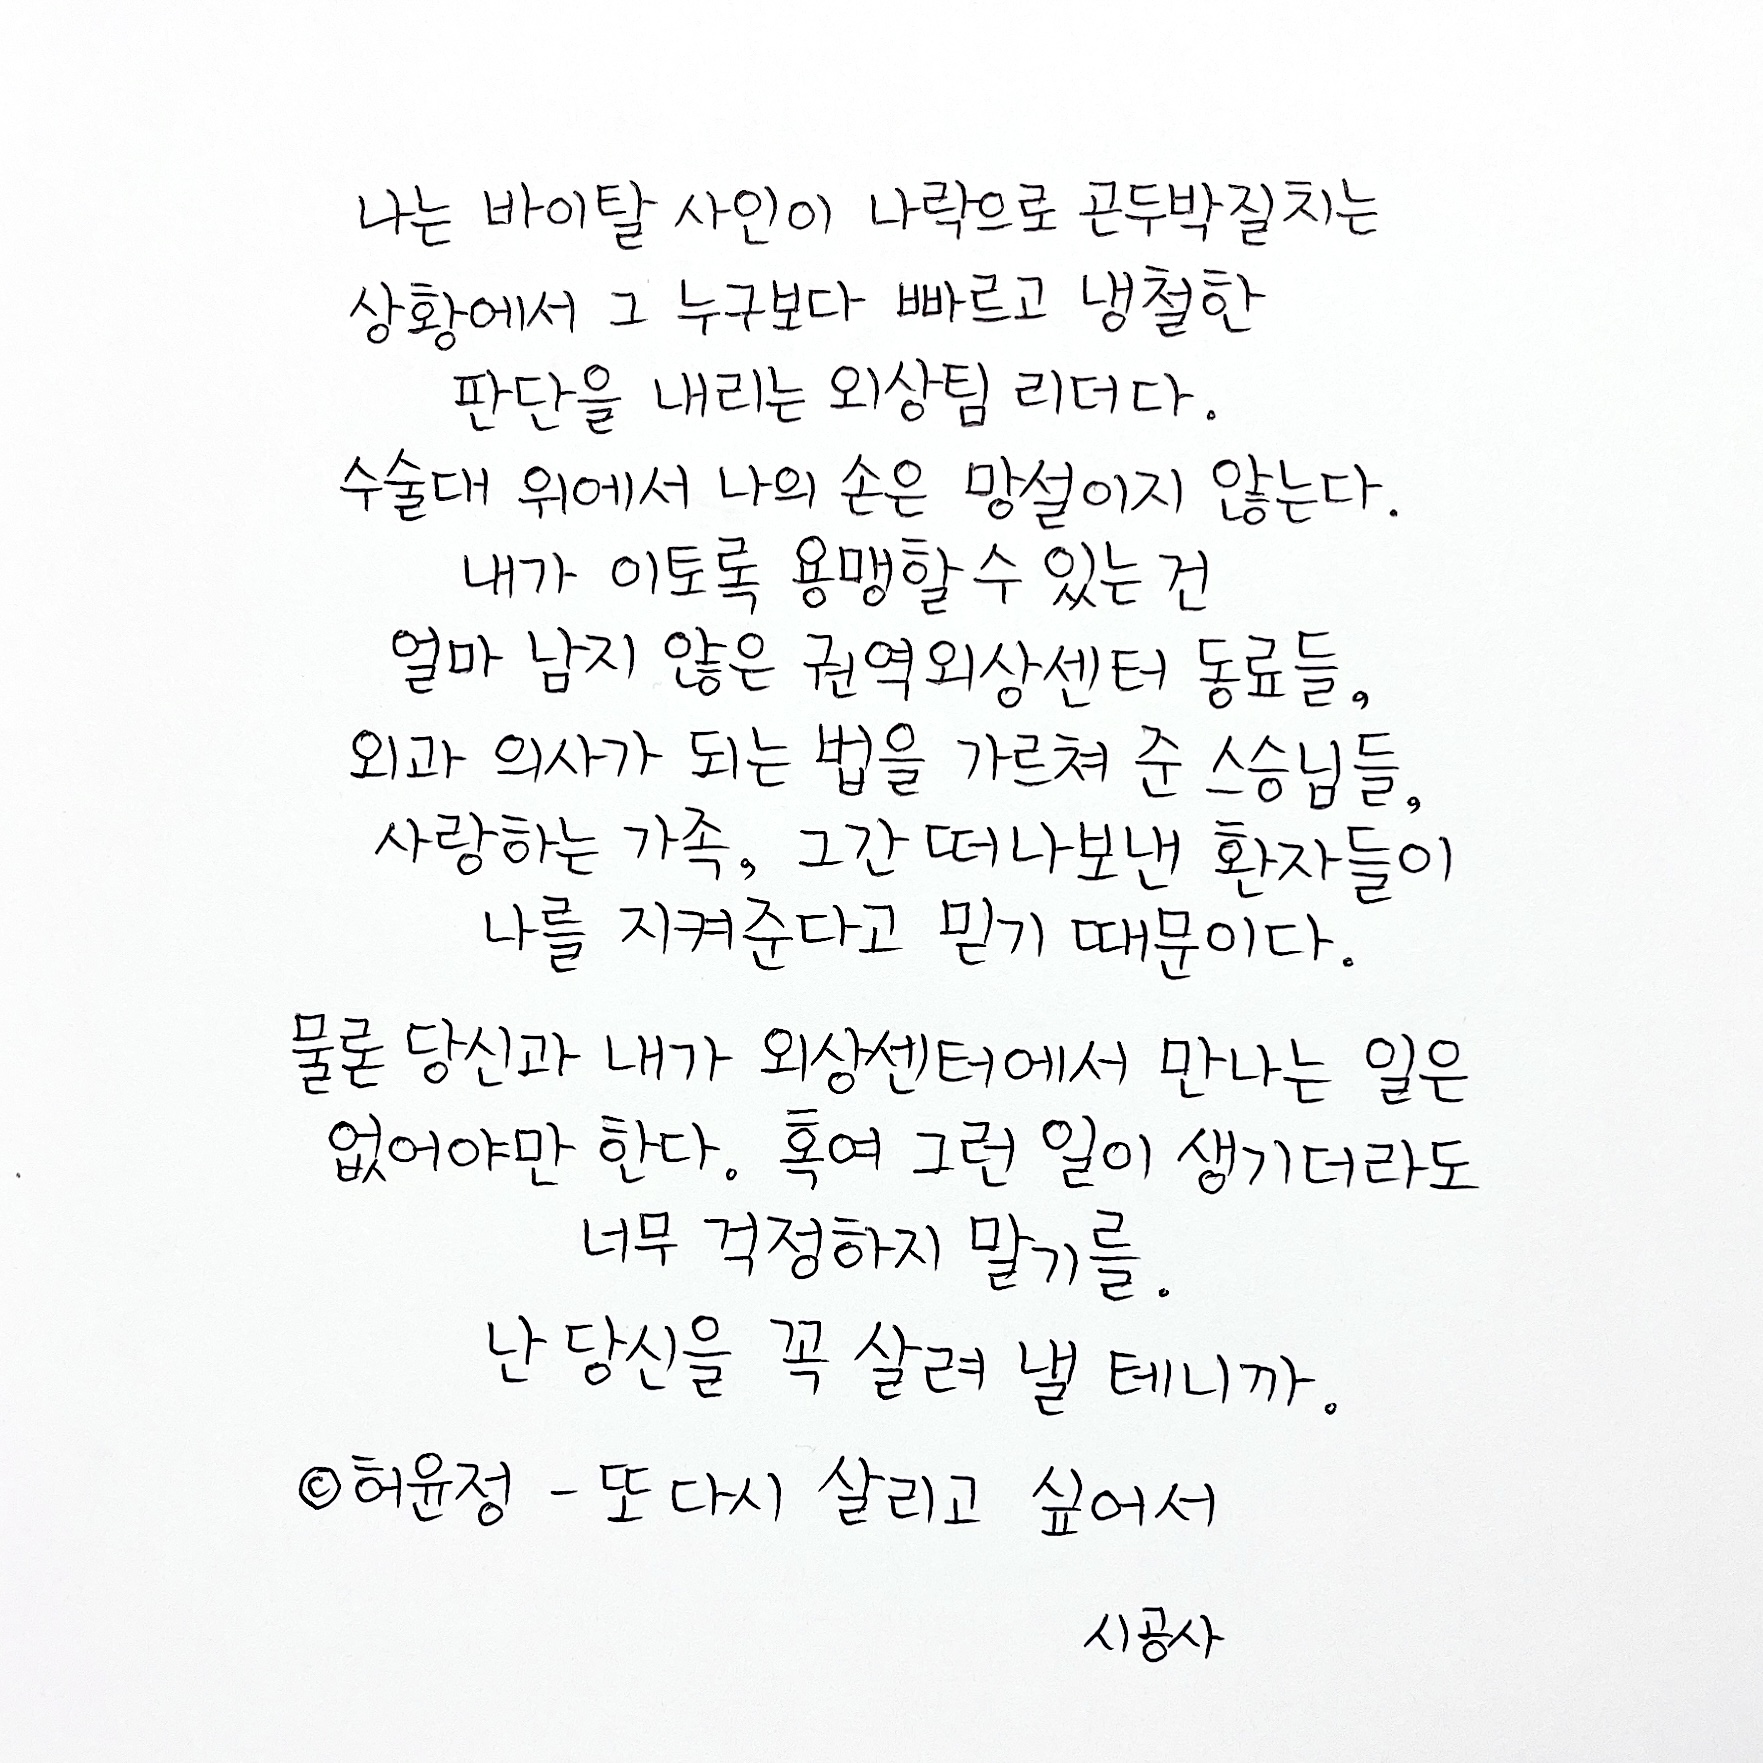 나는 바이탈 사인이 나락으로 곤두박질치는
상황에서 그 누구보다 빠르고 냉철한
판단을 내리는 외상팀 리더다.
수술대 위에서 나의 손은 망설이지 않는다.
내가 이토록 용맹할 수 있는 건
얼마 남지 않은 권역외상센터 동료들,
외과 의사가 되는 법을 가르쳐 준 스승님들,
사랑하는 가족, 그간 떠나보낸 환자들이
나를 지켜준다고 믿기 때문이다.
물론 당신과 내가 외상센터에서 만나는 일은
없어야만 한다. 혹여 그런 일이 생기더라도
너무 걱정하지 말기를.
난 당신을 꼭 살려 낼 테니까.
©허윤정 - 또 다시 살리고 싶어서
시공사